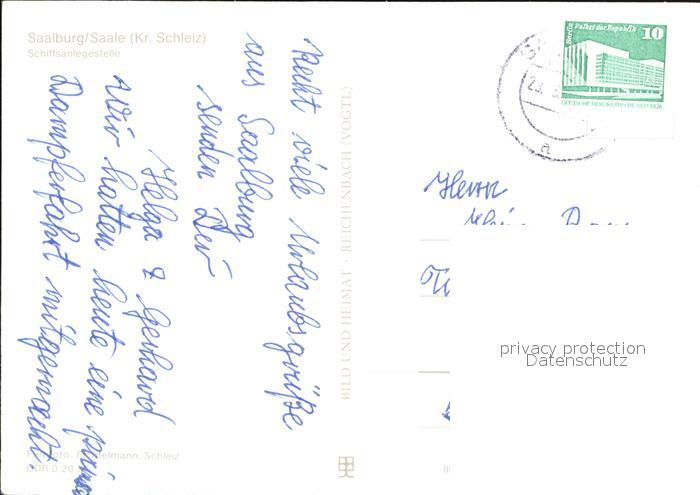 Saalburg/Saale (Kr. Schleiz)
Schiffsanlegestelle
Recht viele Urlaubsgrüße
aus Saalburg
senden Dir
Helga & Gerhard
Wir hatten heute eine prima
Dampferfahrt mitgemacht.
BILD UND HEIMAT · REICHENBACH (VOGTL)
Berlin Palast der Republik 10
DEUTSCHE DEMOKRATISCHE REPUBLIK
a
Herrn
privacy protection
Datenschutz
DDR 0.20